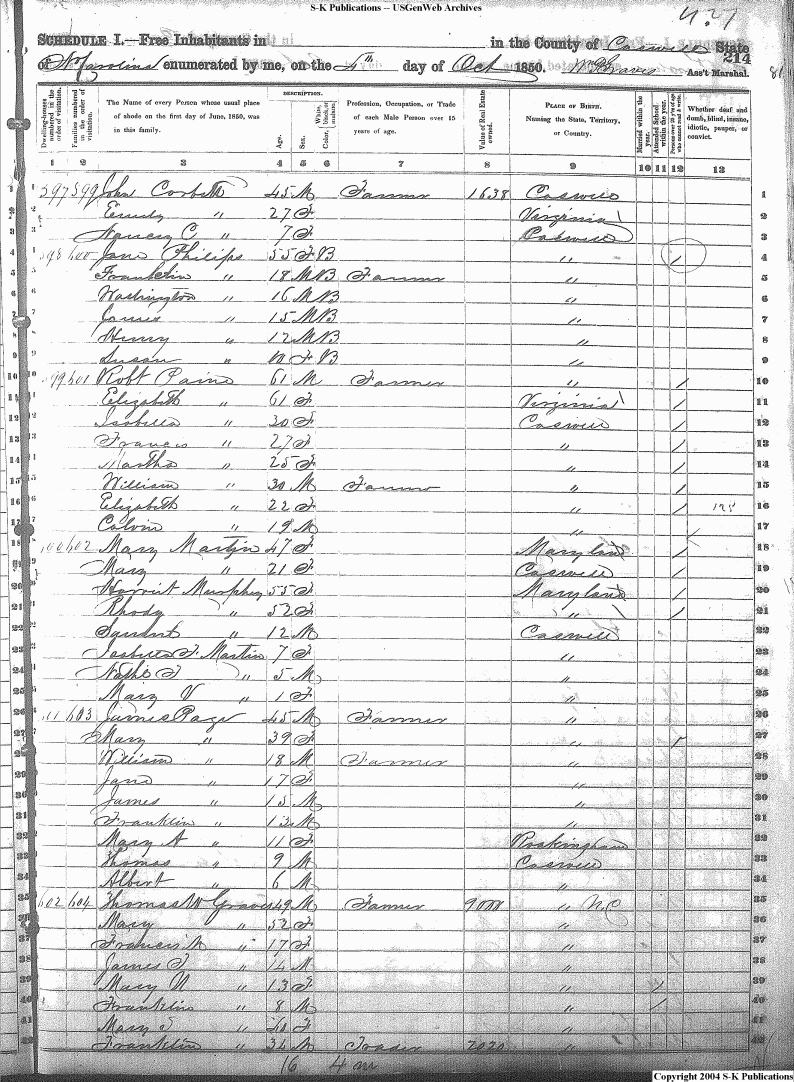 S-K Publications -- USGenWeb Archives
427
SCHEDULE I.—Free Inhabitants in in the County of Caswell State
of N. Carolina enumerated by me, on the 4th day of Oct 1850. Wm Graves Ass't Marshal.
214
81
Dwelling-houses numbered in the order of visitation.
Families numbered in the order of visitation.
The Name of every Person whose usual place of abode on the first day of June, 1850, was in this family.
DESCRIPTION.
Age.
Sex.
Color, White, black, or mulatto.
Profession, Occupation, or Trade of each Male Person over 15 years of age.
Value of Real Estate owned.
PLACE OF BIRTH. Naming the State, Territory, or Country.
Married within the year.
Attended School within the year.
Persons over 20 years of age who cannot read & write.
Whether deaf and dumb, blind, insane, idiotic, pauper, or convict.
1 2 3 4 5 6 7 8 9 10 11 12 13
1 597 599 John Corbett 45 M Farmer 1638 Caswell 1
2 Emily " 27 F Virginia 2
3 Nancy C " 7 F Caswell 3
4 598 600 Jane Philips 55 F B " / 4
5 Franklin " 18 M B Farmer " 5
6 Washington " 16 M B " 6
7 James " 15 M B " 7
8 Henry " 12 M B " 8
9 Susan " 10 F B " 9
10 599 601 Robt Paine 61 M Farmer " / 10
11 Elizabeth " 61 F Virginia / 11
12 Isabella " 30 F Caswell / 12
13 Francis " 27 F " / 13
14 Martha " 25 F " / 14
15 William " 30 M Farmer " / 15
16 Elizabeth " 22 F " / 16
17 Calvin " 19 M " 17
18 600 602 Mary Martin 47 F Maryland / 18
19 Mary " 21 F Caswell / 19
20 Harriet Murphey 55 F Maryland / 20
21 Rhody " 52 F " / 21
22 " 12 M Caswell 22
23 Isabella F. Martin 7 F " 23
24 Nathl T " 5 M " 24
25 Mary V " 1 F " 25
26 601 603 James Page 45 M Farmer " 26
27 Mary " 39 F " / 27
28 William " 18 M Farmer " 28
29 Jane " 17 F " 29
30 James " 15 M " 30
31 Franklin " 13 M " 31
32 Mary A " 11 F Rockingham 32
33 Thomas " 9 M Caswell 33
34 Albert " 6 M " 34
35 602 604 Thomas W Graves 49 M Farmer 9000 " NC 35
36 Mary " 52 F " 36
37 Francis " 17 F " 37
38 James T " 14 M " 38
39 Mary " 13 F " / 39
40 Franklin " 8 M " / 40
41 Mary " F " 41
42 Franklin " 34 M Trader " 42
16 4 m
Copyright 2004 S-K Publications